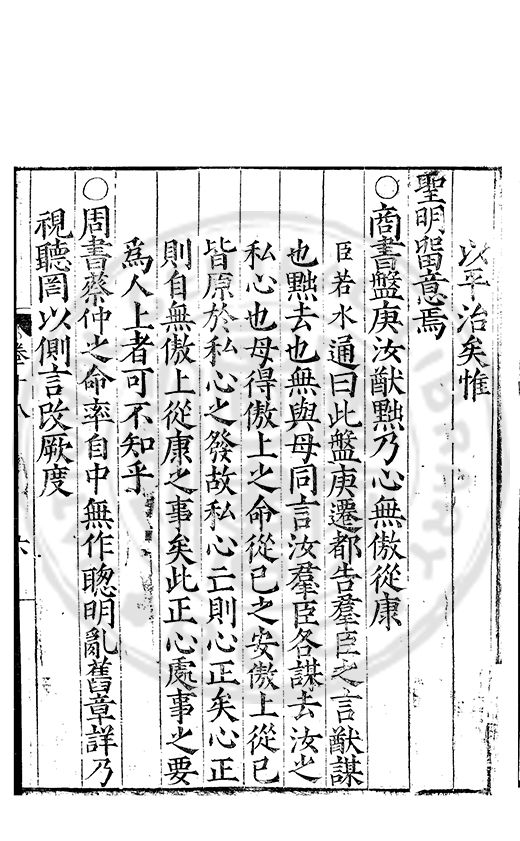 以平治矣惟
聖明留意焉
○商書盤庚汝猷黜乃心無傲從康
臣若水通曰此盤庚遷都告羣臣之言猷謀
也黜去也無與毋同言汝羣臣各謀去汝之
私心也毋得傲上之命從已之安傲上從已
皆原於私心之發故私心亡則心正矣心正
則自無傲上從康之事矣此正心處事之要
爲人上者可不知乎
○周書蔡仲之命率自中無作聰明亂舊章詳乃
視聽罔以側言改厥度
卷十八
六